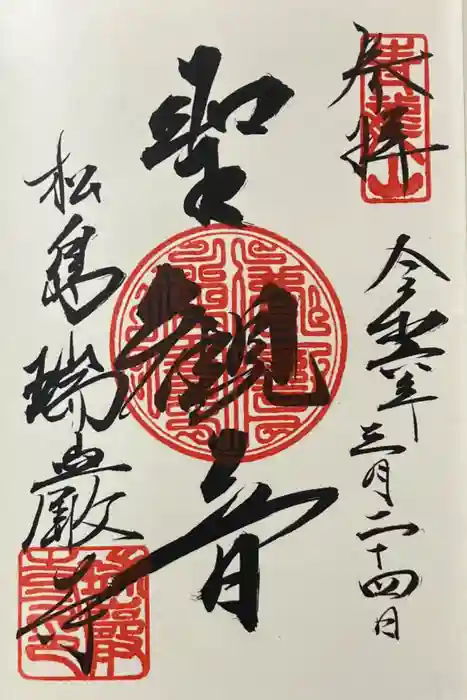 奉拝
青龍山
令和六年三月二十四日
聖観音
松島瑞巌寺